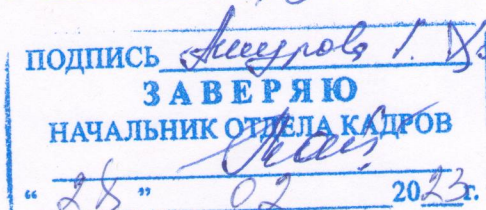 ПОДПИСЬ Ашурова Г.
ЗАВЕРЯЮ
НАЧАЛЬНИК ОТДЕЛА КАДРОВ
“ 28 ” 02 2023г.